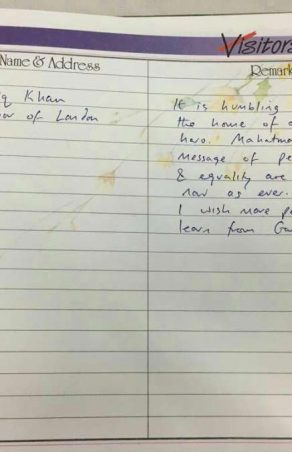 Visitors
Name & Address
Remark
Khan
of London
It is humbling
the home of
hero. Mahatma
message of pe
& equality are
now as ever.
I wish more pe
learn from Ga